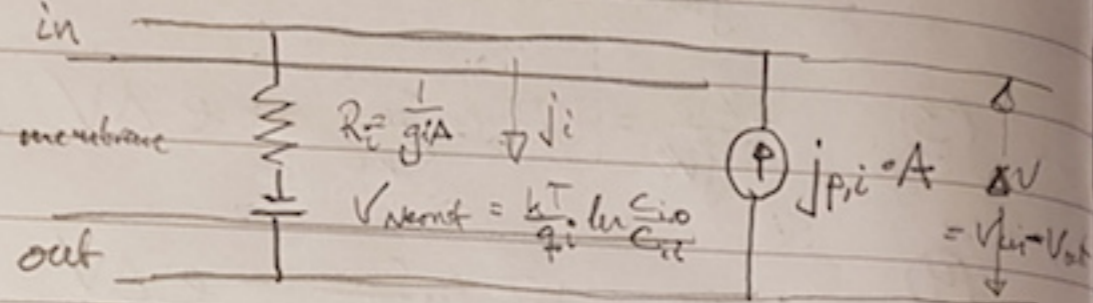 in
membrane
R_i = 1/(g_i A)
j_i
V_Nernst = kT/q_i ln c_io/c_ii
j_p,i · A
ΔV
= V_in - V_out
out